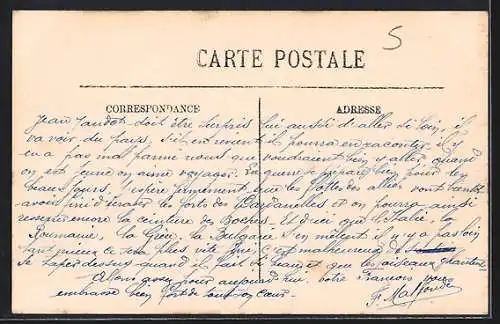 5
CARTE POSTALE
CORRESPONDANCE ADRESSE
Jean doit être surpris lui aussi d'aller si loin, il
va voir du pays, s'il en revient il pourra en raconter. Il y
en a pas mal parmi nous que voudraient bien y aller, quand
on est jeune on aime voyager. La guerre se prépare bien pour les
beaux jours, j'espère fermement que les flottes des alliés vont bientôt
avoir fini d'écraser les forts des Dardanelles et on pourra ainsi
resserrer encore la ceinture de Boches. Et dire que l'Italie, la
Roumanie, la Grèce, la Bulgarie s'en mêlent il n'y a pas loin
tant mieux ce sera plus vite fini. C'est malheureux de
se taper dessus quand il fait si beau et que les oiseaux chantent
Allons assez pour aujourd'hui, votre François vous
embrasse bien fort de tout son cœur.
F.